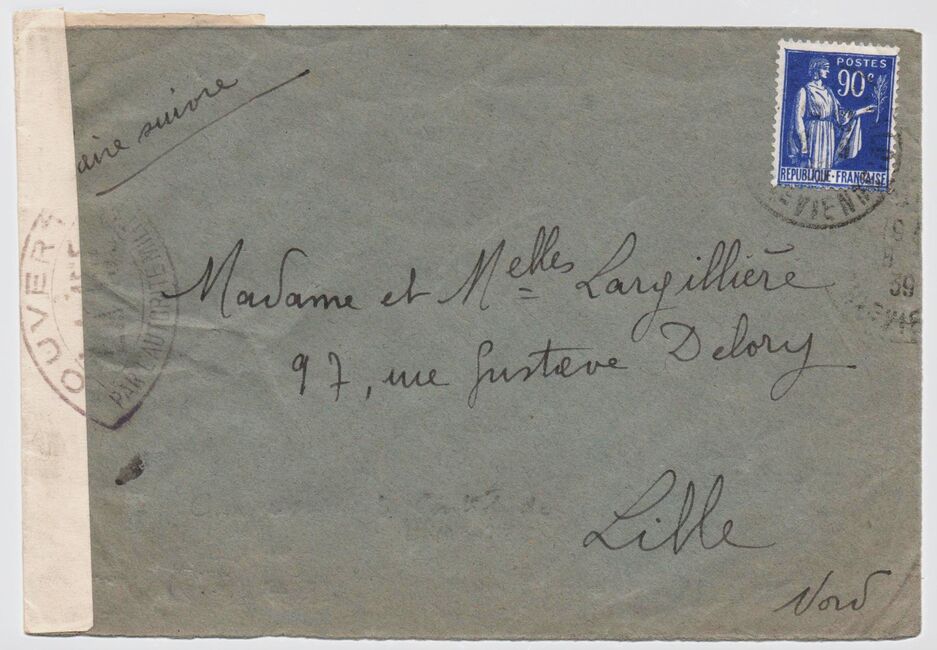 aire suivre
POSTES
90c
RÉPUBLIQUE-FRANÇAISE
VIENN
39
OUVERT
PAR L'AUTORITÉ MILI
Madame et Melles Largillière
97, rue Gustave Delory
Lille
Nord